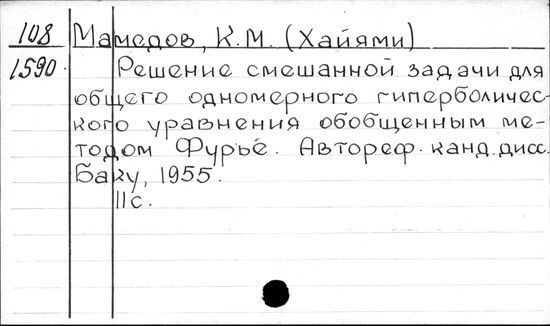 108 Мамедов, К.М. (Хайями)
1590. Решение смешанной задачи для
общего одномерного гиперболичес-
кого уравнения обобщенным ме-
тодом Фурье. Автореф. канд. дисс.
Баку, 1955.
11с.